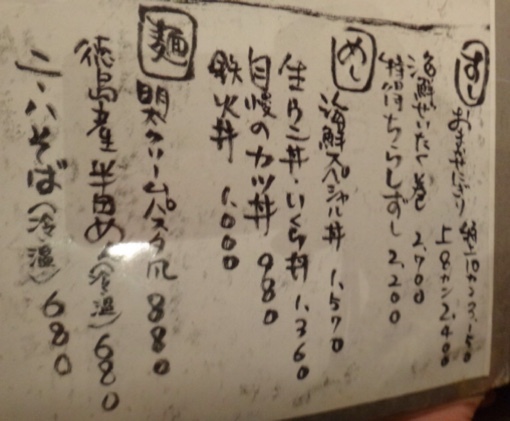 すし
おまかせにぎり 特10カン 3,150
上8カン 2,400
海鮮ぜいたく巻 2,700
特得ちらしずし 2,200
めし
海鮮スペシャル丼 1,570
生うに丼・いくら丼 1,360
自慢のカツ丼 980
鉄火丼 1,000
麺
明太クリームパスタ風 880
徳島産半田めん(冷温) 680
二八そば(冷温) 680